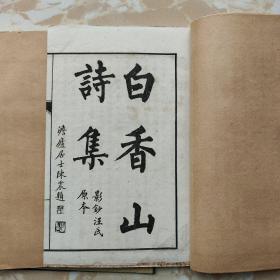 白香山
詩集
影鈔汪氏
原本
居士陳題